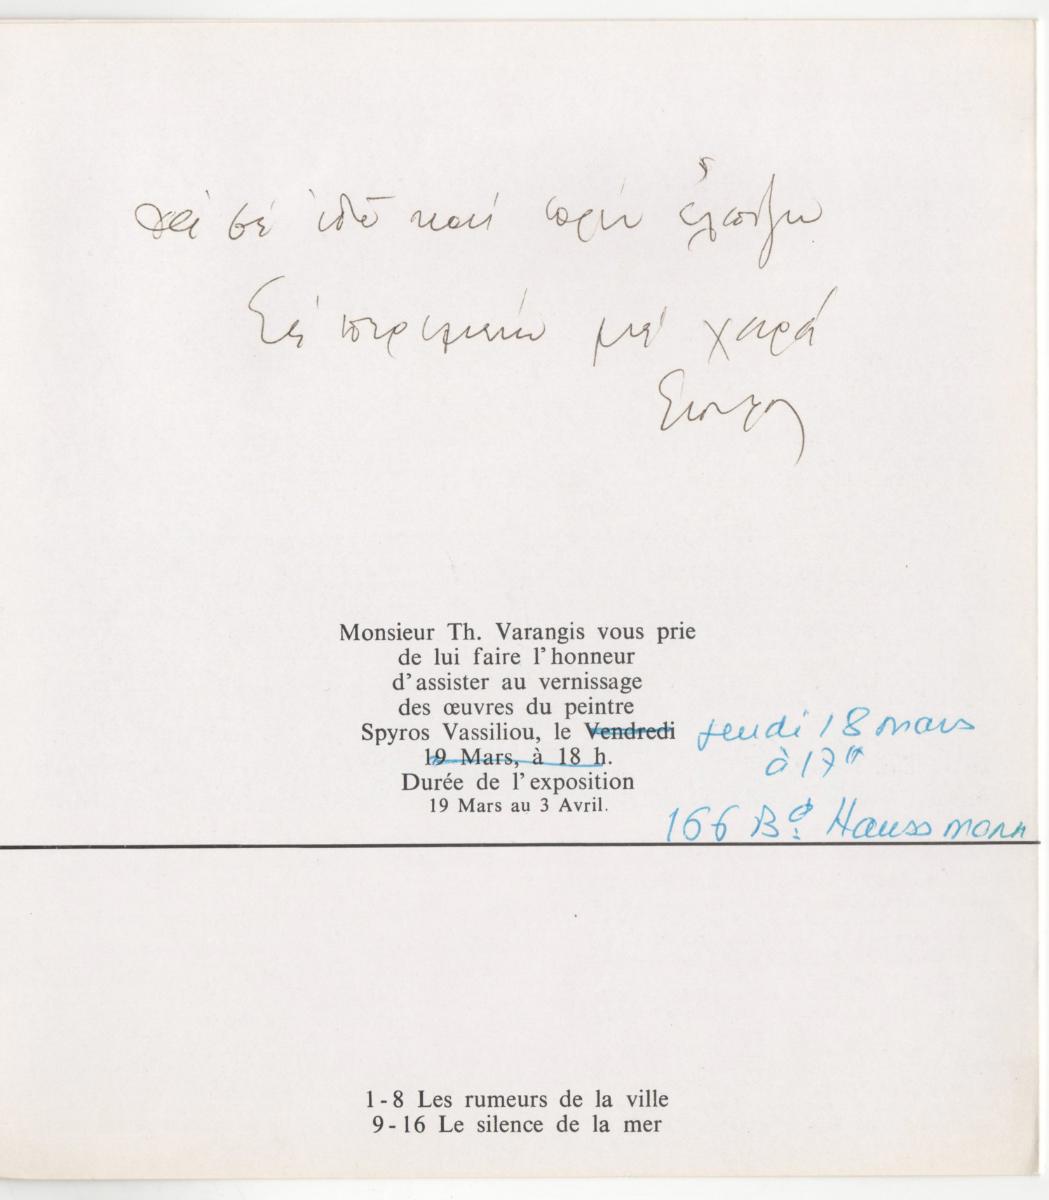 νά σέ ἰδῶ καί πρίν ἐλπίζω
Σέ περιμένω μέ χαρά
Monsieur Th. Varangis vous prie
de lui faire l'honneur
d'assister au vernissage
des œuvres du peintre
Spyros Vassiliou, le Vendredi jeudi 18 mars
19 Mars, à 18 h. à 17h
Durée de l'exposition
19 Mars au 3 Avril.
166 Bd Haussmann
1-8 Les rumeurs de la ville
9-16 Le silence de la mer